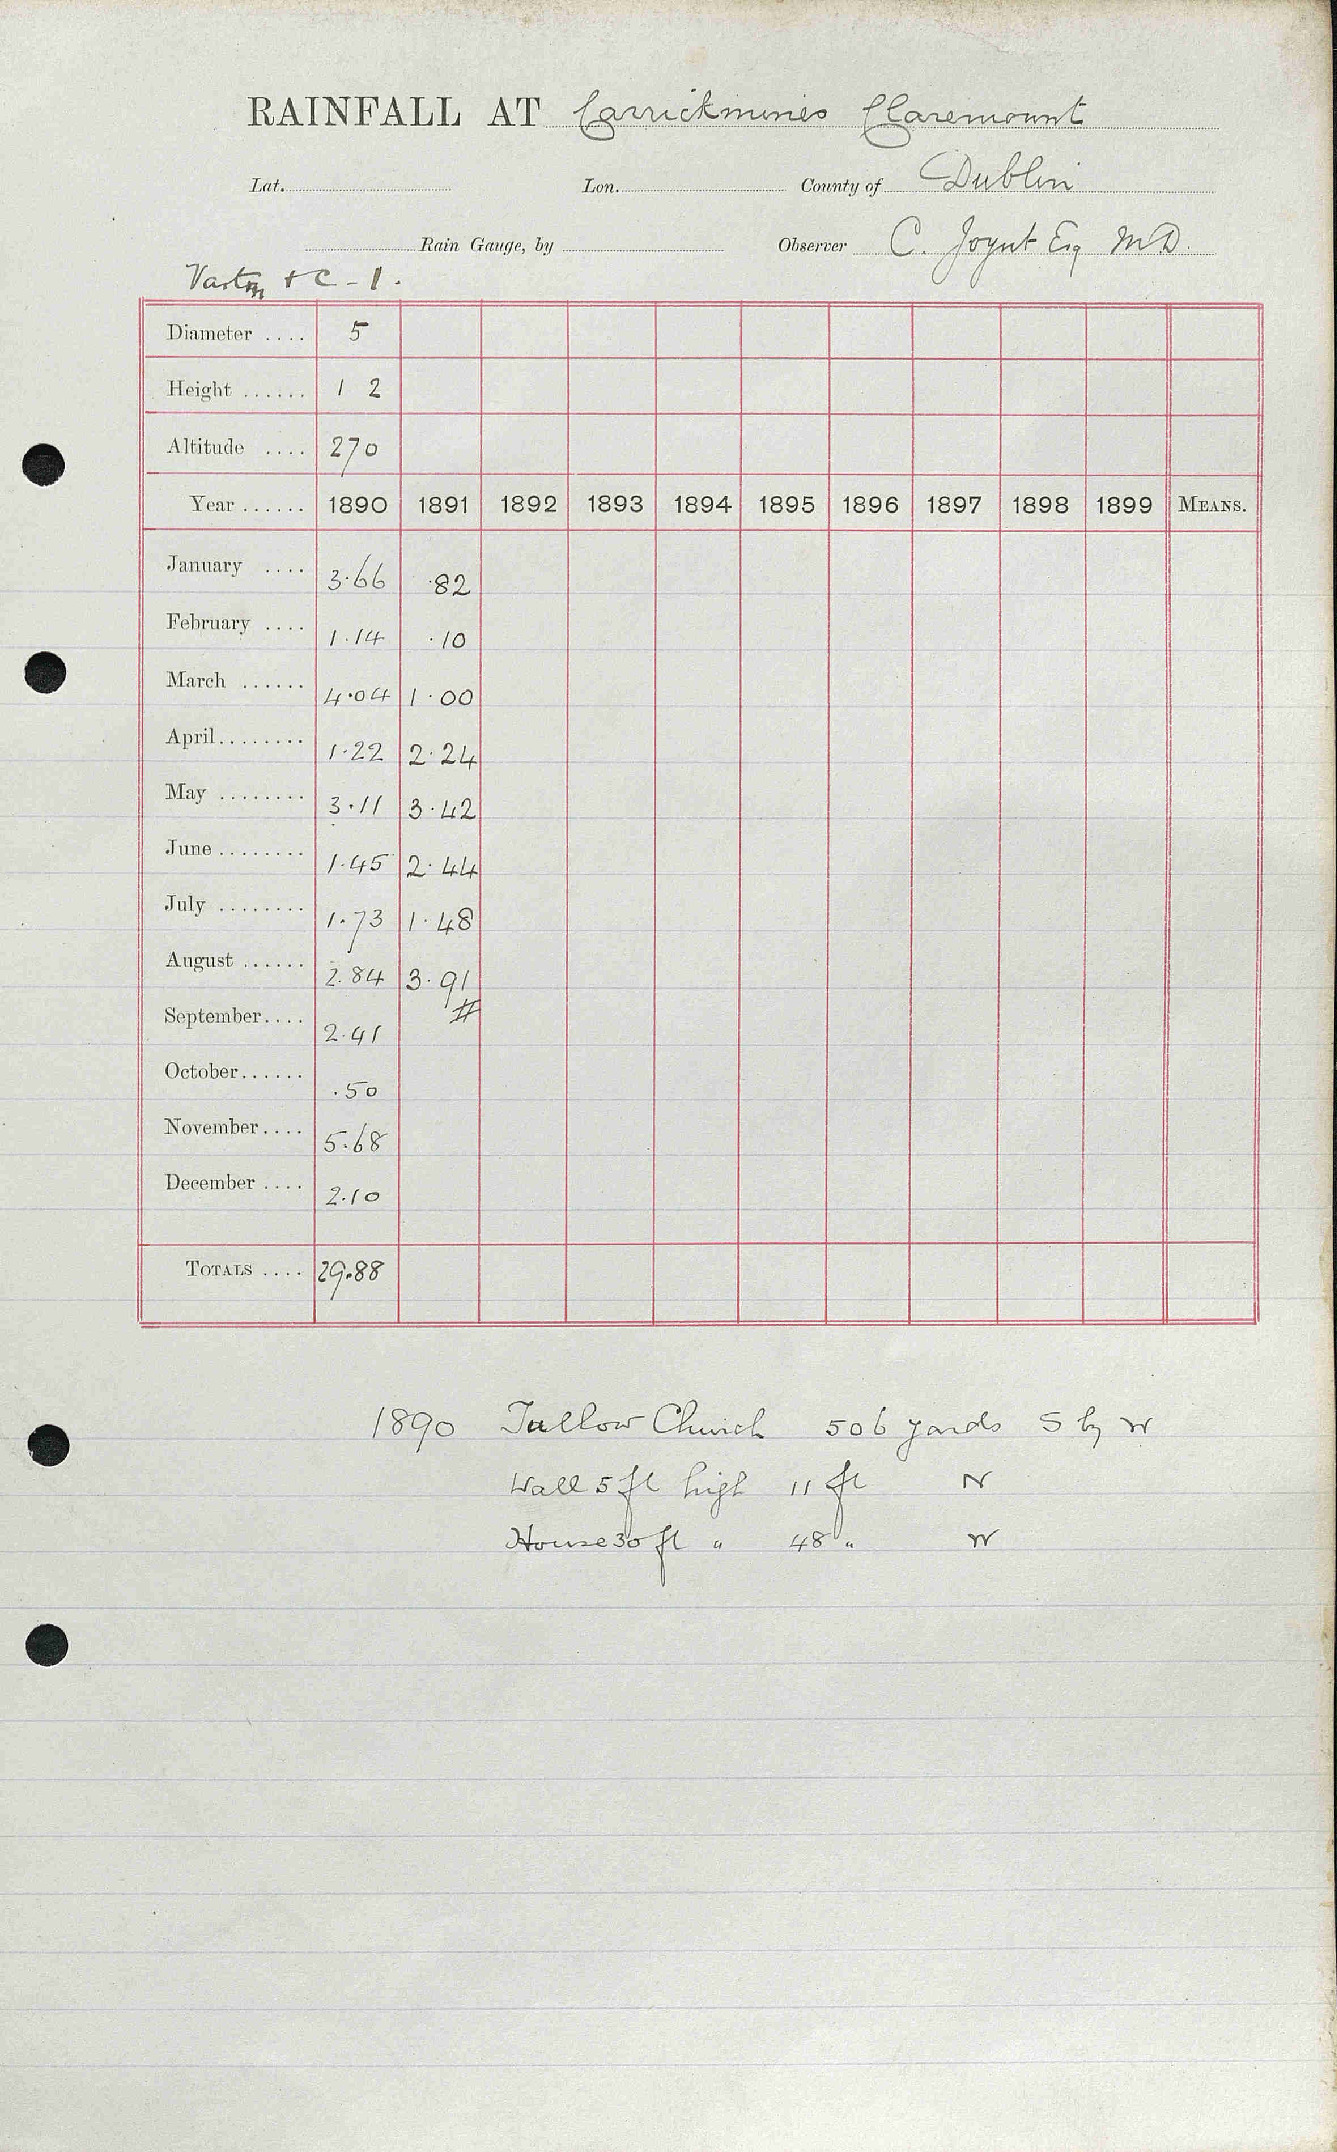 RAINFALL AT Carrickmines Claremount
Lat. Lon. County of Dublin
Rain Gauge, by Observer C. Joynt Esq M.D.
+ C - 1.
Diameter .... 5
Height ...... 1 2
Altitude .... 270
Year ...... 1890 1891 1892 1893 1894 1895 1896 1897 1898 1899 MEANS.
January .... 3.66 .82
February .... 1.14 .10
March ...... 4.04 1.00
April........ 1.22 2.24
May ........ 3.11 3.42
June ........ 1.45 2.44
July ........ 1.73 1.48
August ...... 2.84 3.91
September.... 2.41 #
October...... .50
November.... 5.68
December .... 2.10
TOTALS .... 29.88
1890 Tullow Church 506 yards S by W
Wall 5 ft high 11 ft N
House 30 ft " 48 " W